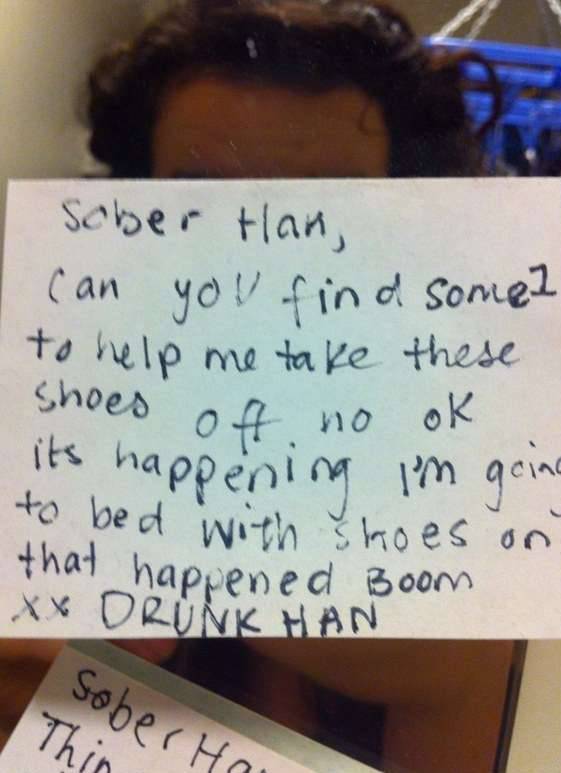 Sober Han,
Can you find some1
to help me take these
shoes off no ok
its happening I'm going
to bed with shoes on
that happened Boom
xx DRUNK HAN
Sober Ha
Thin